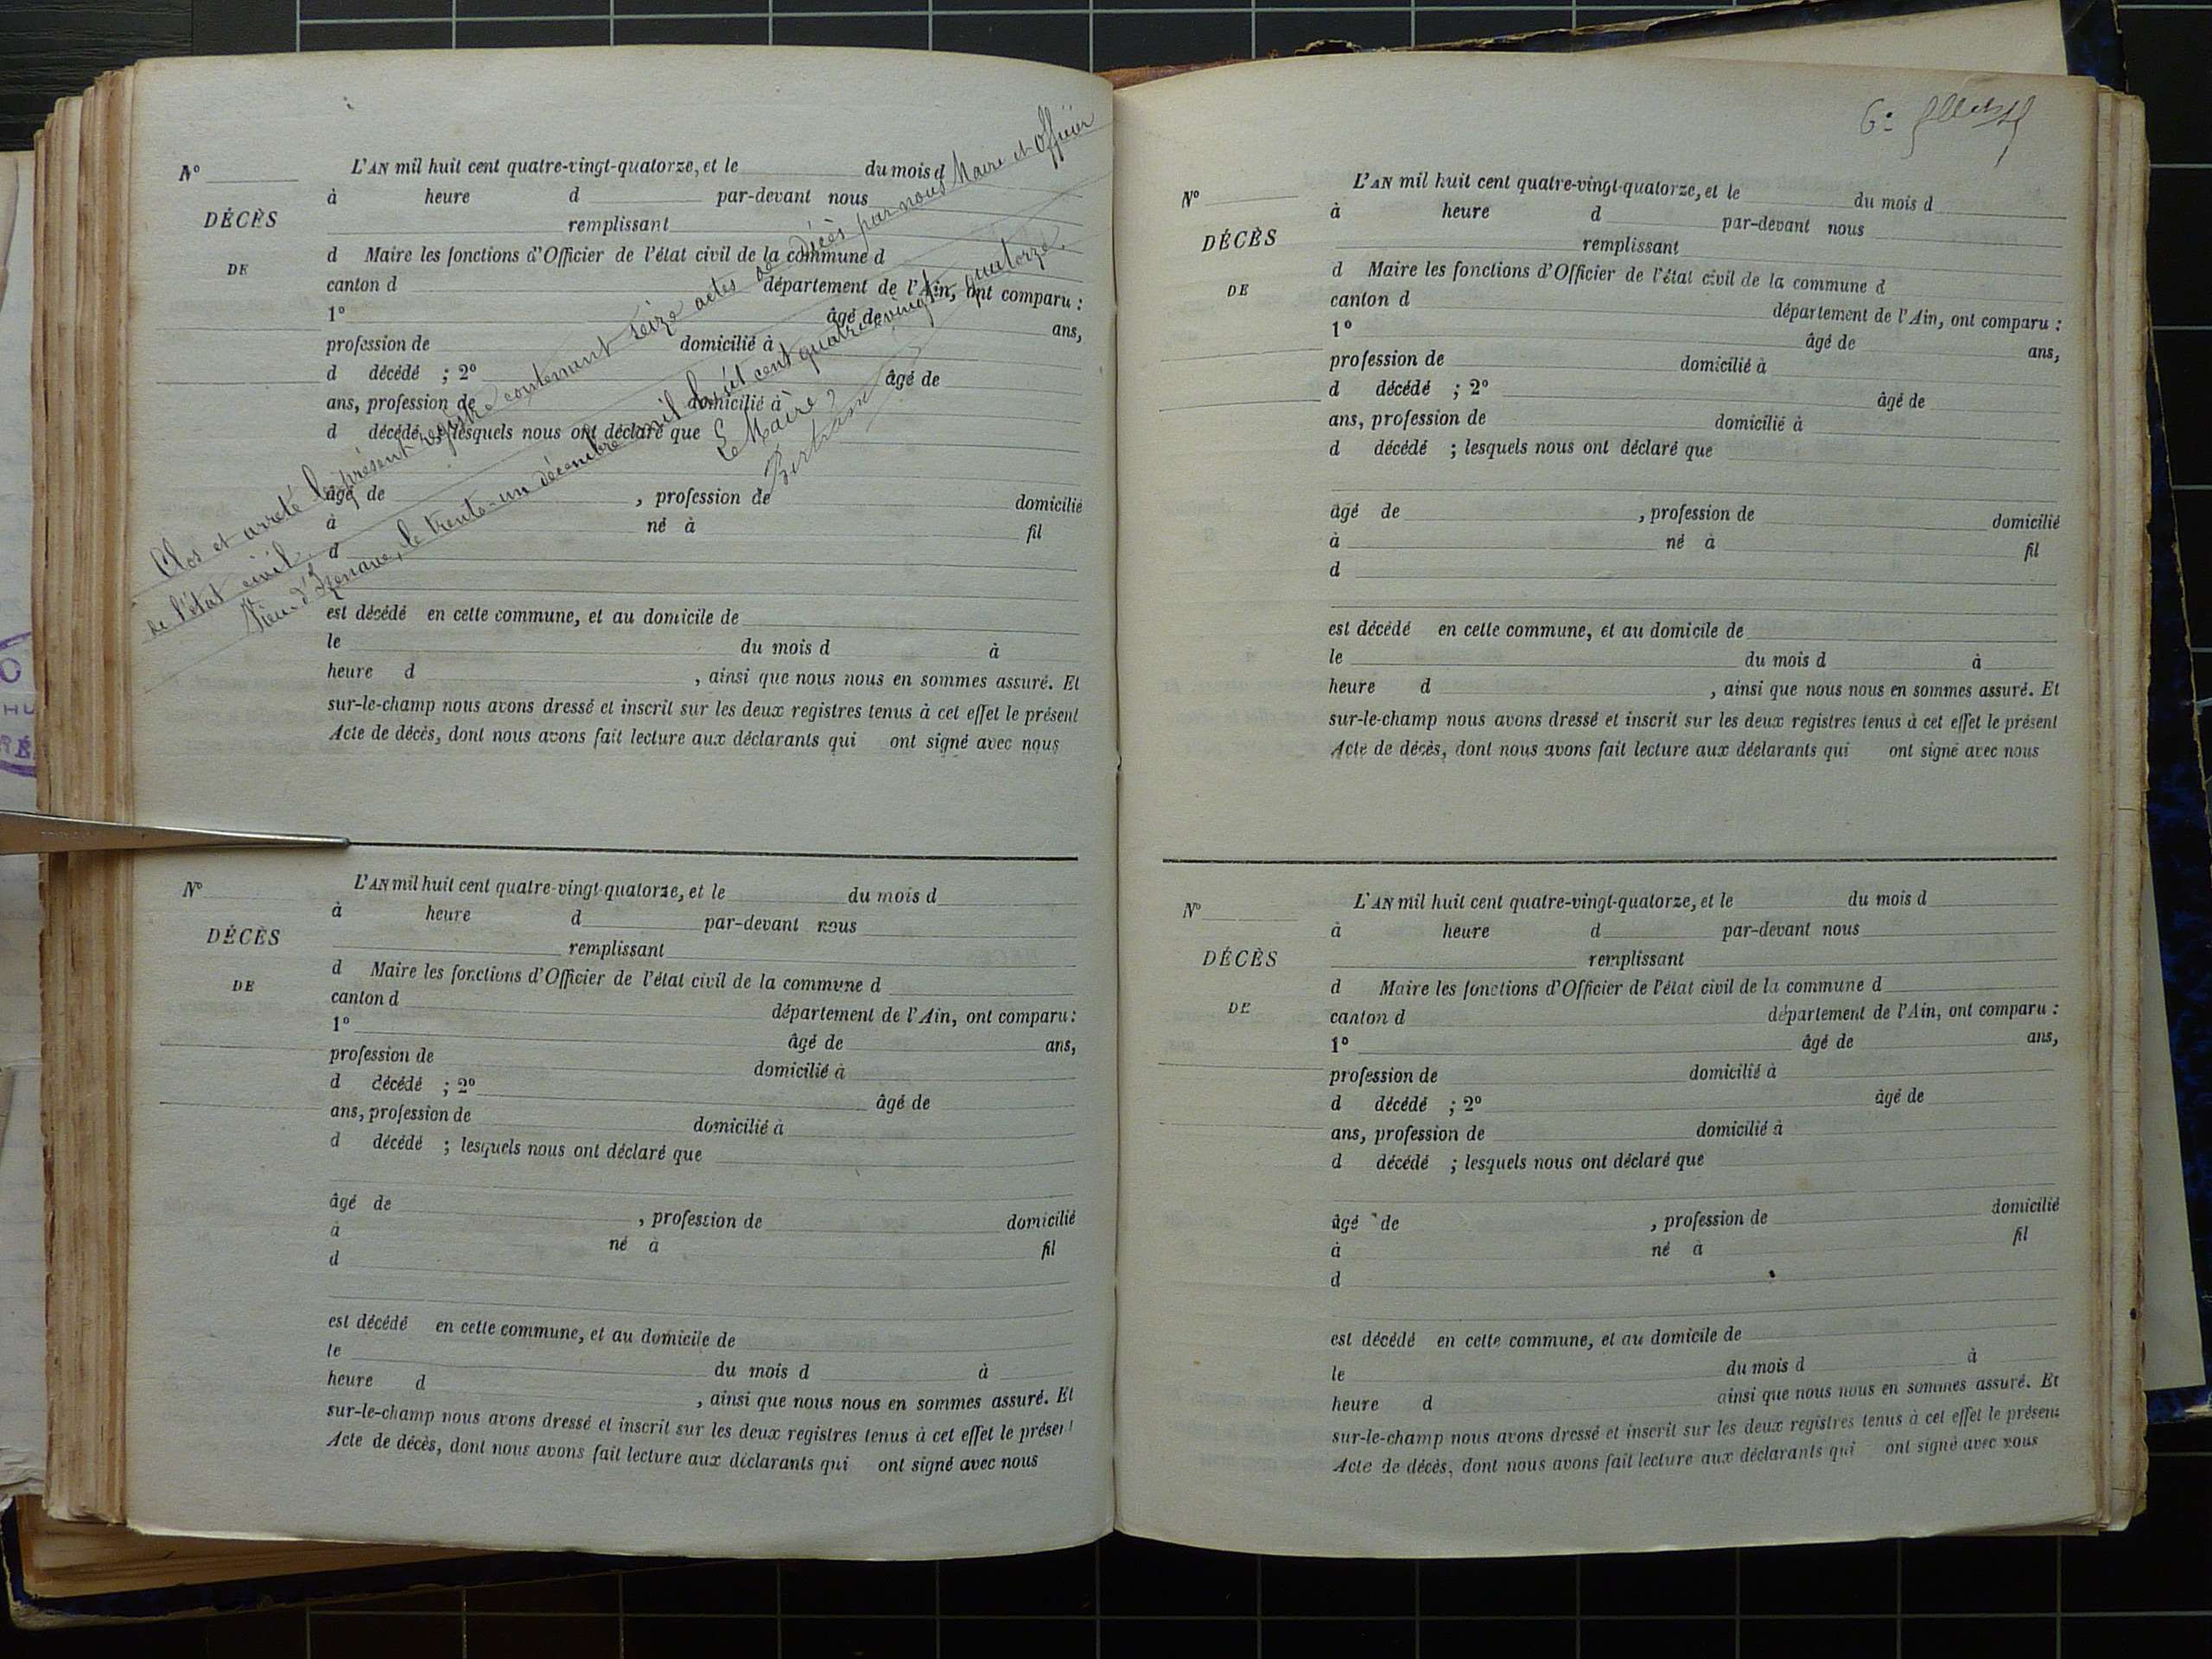 N° L'AN mil huit cent quatre-vingt-quatorze, et le du mois d
à heure d par-devant nous
DÉCÈS
remplissant
d Maire les fonctions d'Officier de l'état civil de la commune d
DE
canton d département de l'Ain, ont comparu :
1° âgé de ans,
profession de domicilié à
d décédé ; 2° âgé de
ans, profession de domicilié à
d décédé ; lesquels nous ont déclaré que
âgé de , profession de domicilié
à né à fil
d
est décédé en cette commune, et au domicile de
le du mois d à
heure d , ainsi que nous nous en sommes assuré. Et
sur-le-champ nous avons dressé et inscrit sur les deux registres tenus à cet effet le présent
Acte de décès, dont nous avons fait lecture aux déclarants qui ont signé avec nous
Clos et arrêté le présent registre contenant seize actes de décès par nous Maire et Officier
de l'état civil.
Vieu-d'Izenave, le trente-un décembre mil huit cent quatre-vingt-quatorze.
Le Maire,
Bertrand
N° L'AN mil huit cent quatre-vingt-quatorze, et le du mois d
à heure d par-devant nous
DÉCÈS
remplissant
d Maire les fonctions d'Officier de l'état civil de la commune d
DE
canton d département de l'Ain, ont comparu :
1° âgé de ans,
profession de domicilié à
d décédé ; 2° âgé de
ans, profession de domicilié à
d décédé ; lesquels nous ont déclaré que
âgé de , profession de domicilié
à né à fil
d
est décédé en cette commune, et au domicile de
le du mois d à
heure d , ainsi que nous nous en sommes assuré. Et
sur-le-champ nous avons dressé et inscrit sur les deux registres tenus à cet effet le présent
Acte de décès, dont nous avons fait lecture aux déclarants qui ont signé avec nous
6e
N° L'AN mil huit cent quatre-vingt-quatorze, et le du mois d
à heure d par-devant nous
DÉCÈS
remplissant
d Maire les fonctions d'Officier de l'état civil de la commune d
DE
canton d département de l'Ain, ont comparu :
1° âgé de ans,
profession de domicilié à
d décédé ; 2° âgé de
ans, profession de domicilié à
d décédé ; lesquels nous ont déclaré que
âgé de , profession de domicilié
à né à fil
d
est décédé en cette commune, et au domicile de
le du mois d à
heure d , ainsi que nous nous en sommes assuré. Et
sur-le-champ nous avons dressé et inscrit sur les deux registres tenus à cet effet le présent
Acte de décès, dont nous avons fait lecture aux déclarants qui ont signé avec nous
N° L'AN mil huit cent quatre-vingt-quatorze, et le du mois d
à heure d par-devant nous
DÉCÈS
remplissant
d Maire les fonctions d'Officier de l'état civil de la commune d
DE
canton d département de l'Ain, ont comparu :
1° âgé de ans,
profession de domicilié à
d décédé ; 2° âgé de
ans, profession de domicilié à
d décédé ; lesquels nous ont déclaré que
âgé de , profession de domicilié
à né à fil
d
est décédé en cette commune, et au domicile de
le du mois d à
heure d ainsi que nous nous en sommes assuré. Et
sur-le-champ nous avons dressé et inscrit sur les deux registres tenus à cet effet le présent
Acte de décès, dont nous avons fait lecture aux déclarants qui ont signé avec nous